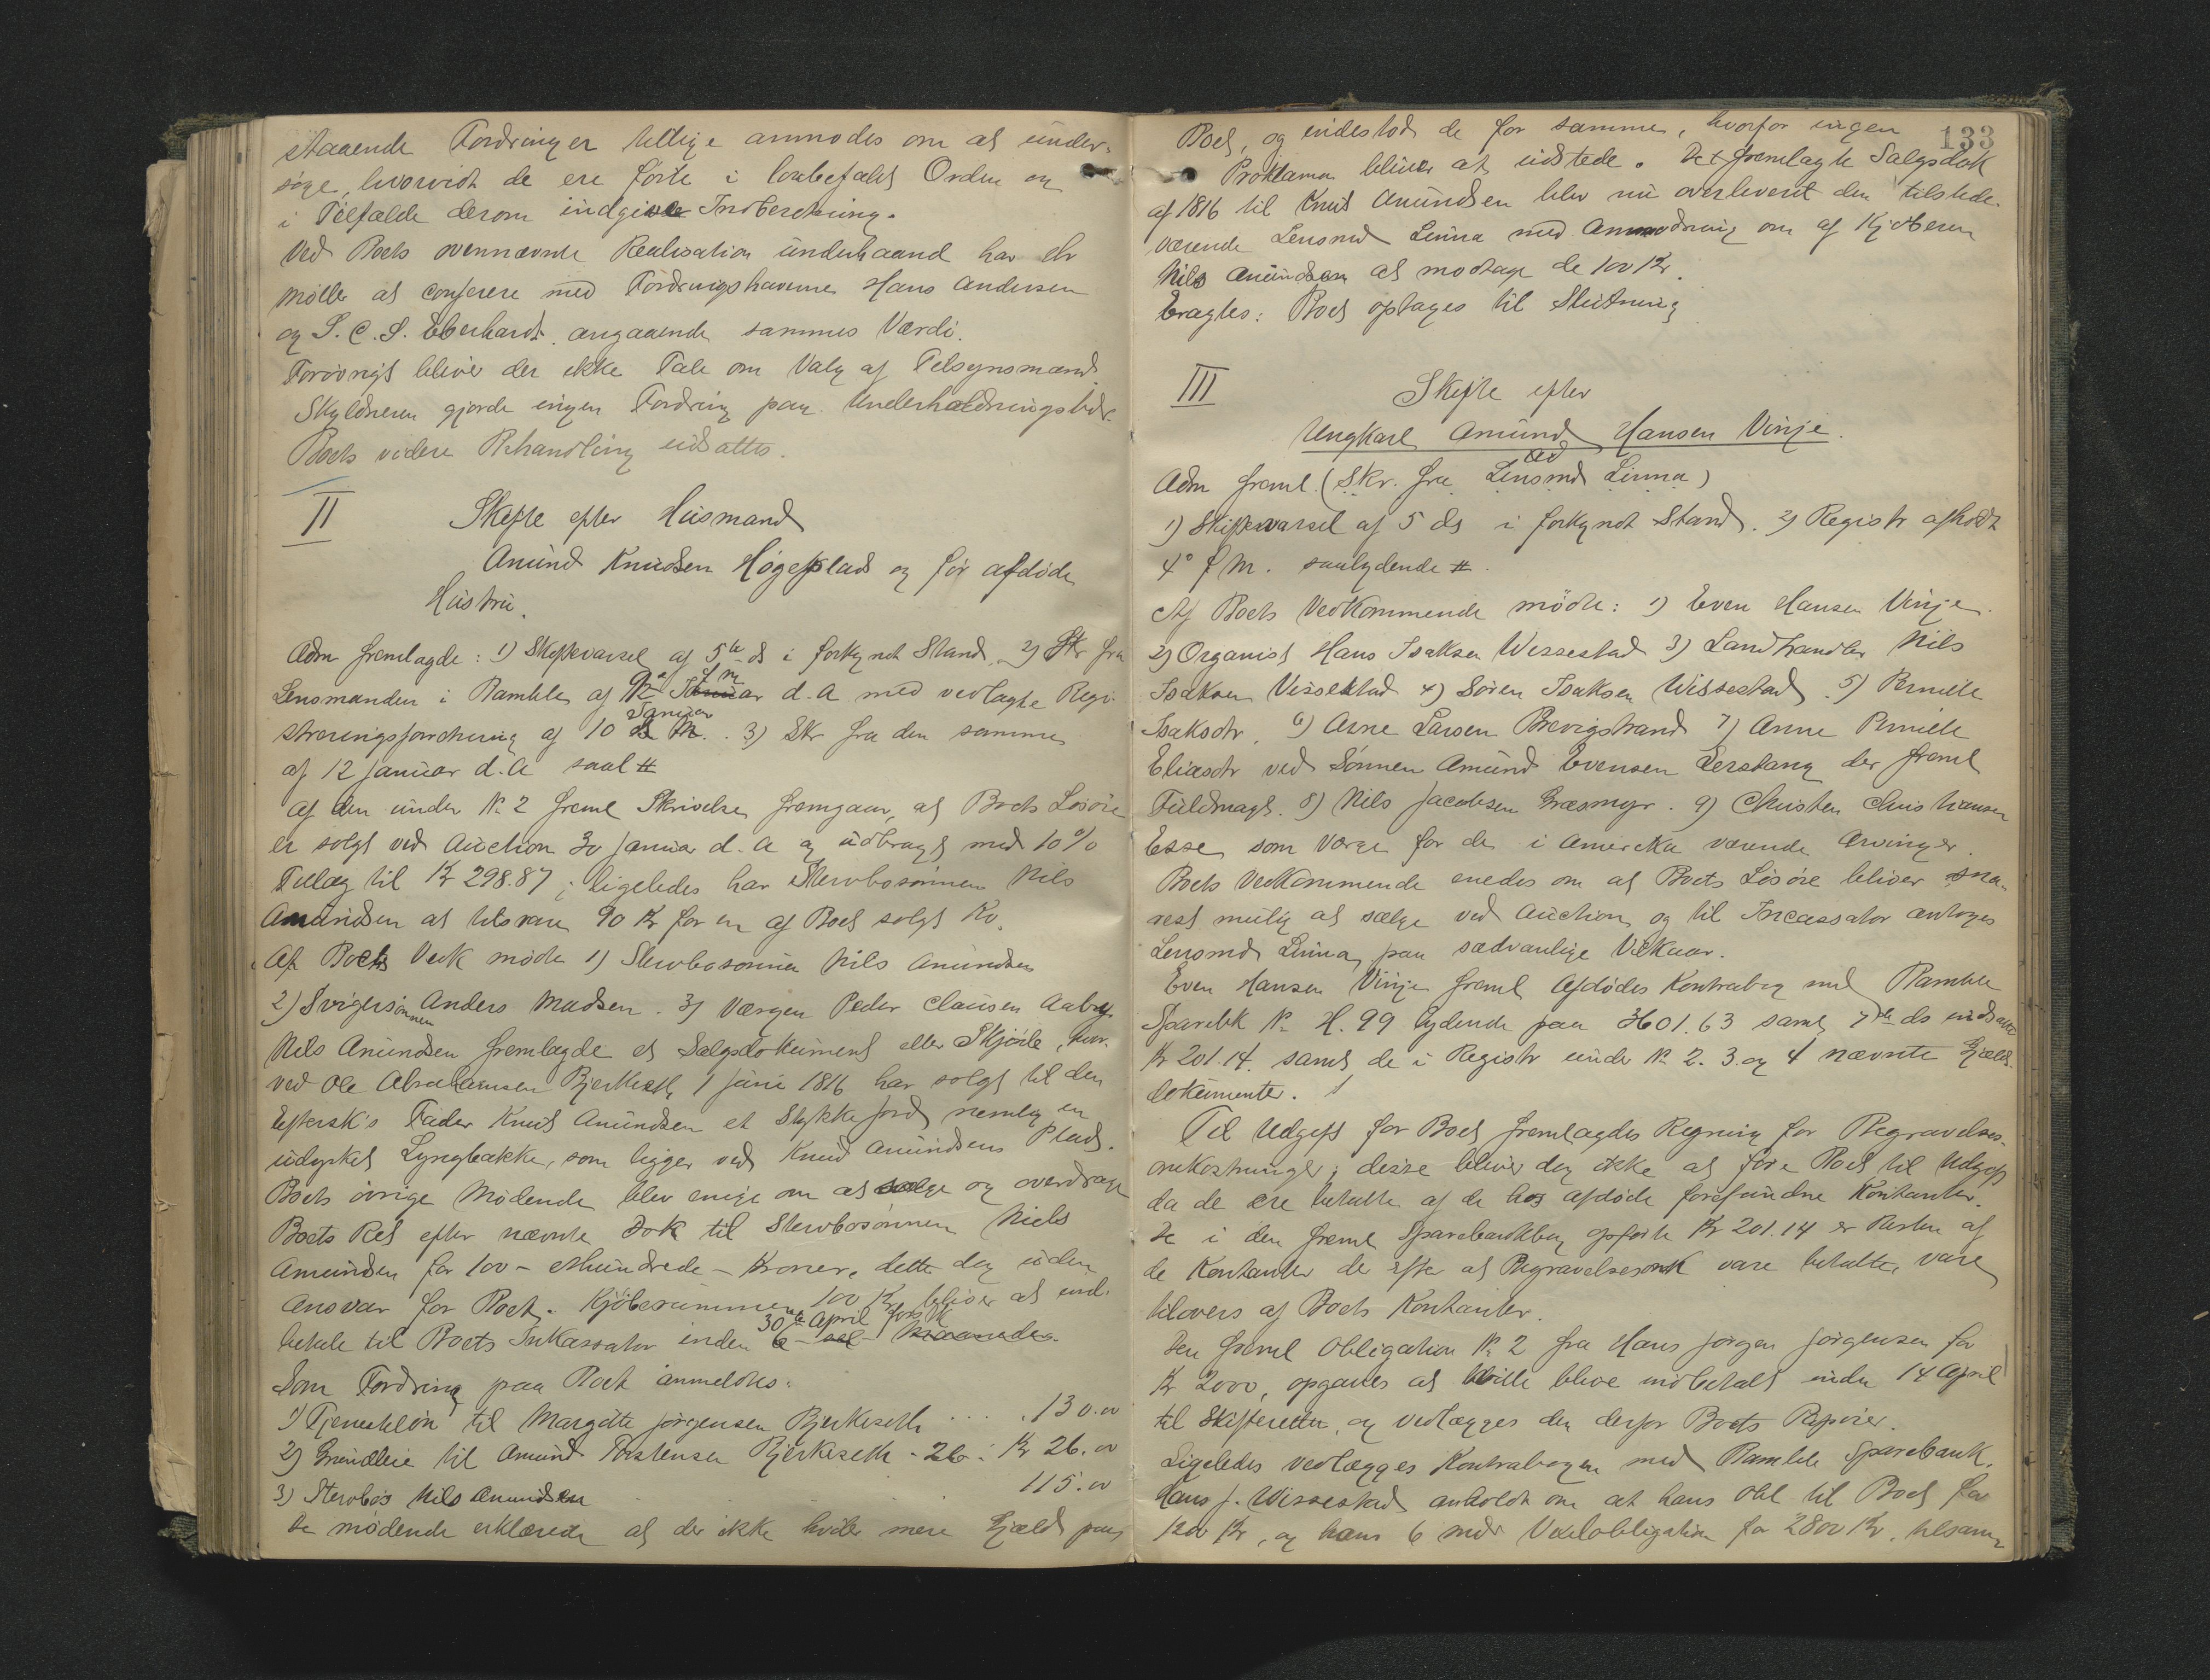 staaende Fordringer tillige anmodes om at under-
søge, hvorvidt de ere førte i lovbefalet Orden og
i Tilfælde derom indgive Indberetning.
Ved Boets ovennævnte Realisation underhaand har
Møller at conferere med Fordringshaverne Hans Andersen
og S. C. S. Eberhardt angaaende sammes Værdi.
Forøvrigt bliver der ikke Tale om Valg af Tilsynsmænd
Skyldneren gjorde ingen Fordring paa Underholdningsbidr.
Boets videre Behandling udsattes.
II Skifte efter Husmand
Amund Knudsen Høgeplads og før afdøde
Hustru.
Adm fremlagde: 1) Skiftevarsel af 5te ds i forkyndt Stand, 2) Skr fra
Lensmanden i Bamble af f M Januar d.A med vedlagte Regi-
streringsforretning af 10 Januar. 3) Skr fra den samme
af 12 Januar d.A saal #
Af den under N. 2 freml Skrivelse fremgaar, at Boets Løsøre
er solgt ved Auction 30 Januar d.A og udbragt med 10%
Tillæg til Kr 298.87; ligeledes har Stervbosønnen Nils
Amundsen at tilsvare 90 Kr for en af Boet solgt Ko.
Af Boets Vedk mødte 1) Stervbosønnen Nils Amundsen
2) Svigersønnen Anders Madsen. 3) Værgen Peder Clausen Aaby.
Nils Amundsen fremlagde et Salgsdokument eller Skjøde, hvor-
ved Ole Abrahamsen Bjerkeseth 1 Juni 1816 har solgt til den
Eftersk's Fader Knud Amundsen et Stykke Jord nemlig en
udyrket Lyngbakke, som ligger ved Knud Amundsens Plads.
Boets øvrige Mødende blev enige om at sælge og overdrage
Boets Ret efter nævnte Dok til Stervbosønnen Niels
Amundsen for 100 - Ethundrede - Kroner, dette dog uden
Ansvar for Boet. Kjøbesummen 100 Kr bliver at ind-
betale til Boets Inkassator inden 30te April førstk
Som Fordring paa Boet anmeldtes:
1) Tjenesteløn til Margithe Jørgensen Bjerkeseth .... 130.00
2) Grundleie til Amund Torstensen Bjerkeseth - 26: Kr 26.00
3) Stervbos Nils Amundsen 115.00
De mødende erklærede at der ikke hviler mere Gjæld paa
133
Boet, og indestod de for samme, hvorfor ingen
Proklama bliver at udstede. Det fremlagte Salgsdok
af 1816 til Knud Amundsen blev nu overleveret den tilstede-
værende Lensmd Linna med Anmodning om af Kjøberen
Nils Amundsen at modtage de 100 Kr.
Eragtes: Boet optages til Slutning
III Skifte efter
Ungkarl Amund Hansen Vinje.
Adm freml. (Skr. fra Lensmd Linna)
1) Skiftevarsel af 5 ds i forkyndt Stand. 2) Registr afholdt
4de f M. saalydende #.
Af Boets Vedkommende mødte: 1) Even Hansen Vinje.
2) Organist Hans Isaksen Wissestad 3) Landhandler Nils
Isaksen Vissestad 4) Søren Isaksen Wissestad. 5) Pernille
Isaksdtr, 6) Arne Larsen Brevigstrand 7) Anne Pernille
Eliasdtr ved Sønnen Amund Evensen der freml
Fuldmagt. 8) Nils Jacobsen Græsmyr. 9) Christen Christiansen
Esse som Værge for de i Amerika værende Arvinger.
Boets Vedkommende enedes om at Boets Løsøre bliver sna-
rest mulig at sælge ved Auction og til Incassator antoges
Lensmd Linna paa sædvanlige Vilkaar.
Even Hansen Vinje freml Afdødes Kontrabog med Bamble
Sparebk N. H. 99 lydende paa 3601.63 samt 7de ds indsatte
Kr 201.14. samt de i Registr under N. 2. 3. og 4 nævnte Gjælds-
dokumenter.
Til Udgift for Boet fremlagdes Regning for Begravelses-
omkostninger; disse bliver dog ikke at føre Boet til Udgift
da de ere betalte af de hos afdøde forefundne Kontanter.
De i den freml Sparebankbog opførte Kr 201.14 er Resten af
de Kontanter der efter at Begravelsesomk vare betalte, vare
tilovers af Boets Kontanter.
Den freml Obligation N. 2 fra Hans Jørgen Jørgensen for
Kr 2000, opgaves at ville blive indbetalt inden 14 April
til Skifteretten, og vedlægges den derfor Boets Papirer.
Ligeledes vedlægges Kontrabogen med Bamble Sparebank.
Hans J. Wissestad anholdt om at hans Obl til Boet for
1200 Kr, og hans 6 mdr Vexelobligation for 2800 Kr, tilsam-